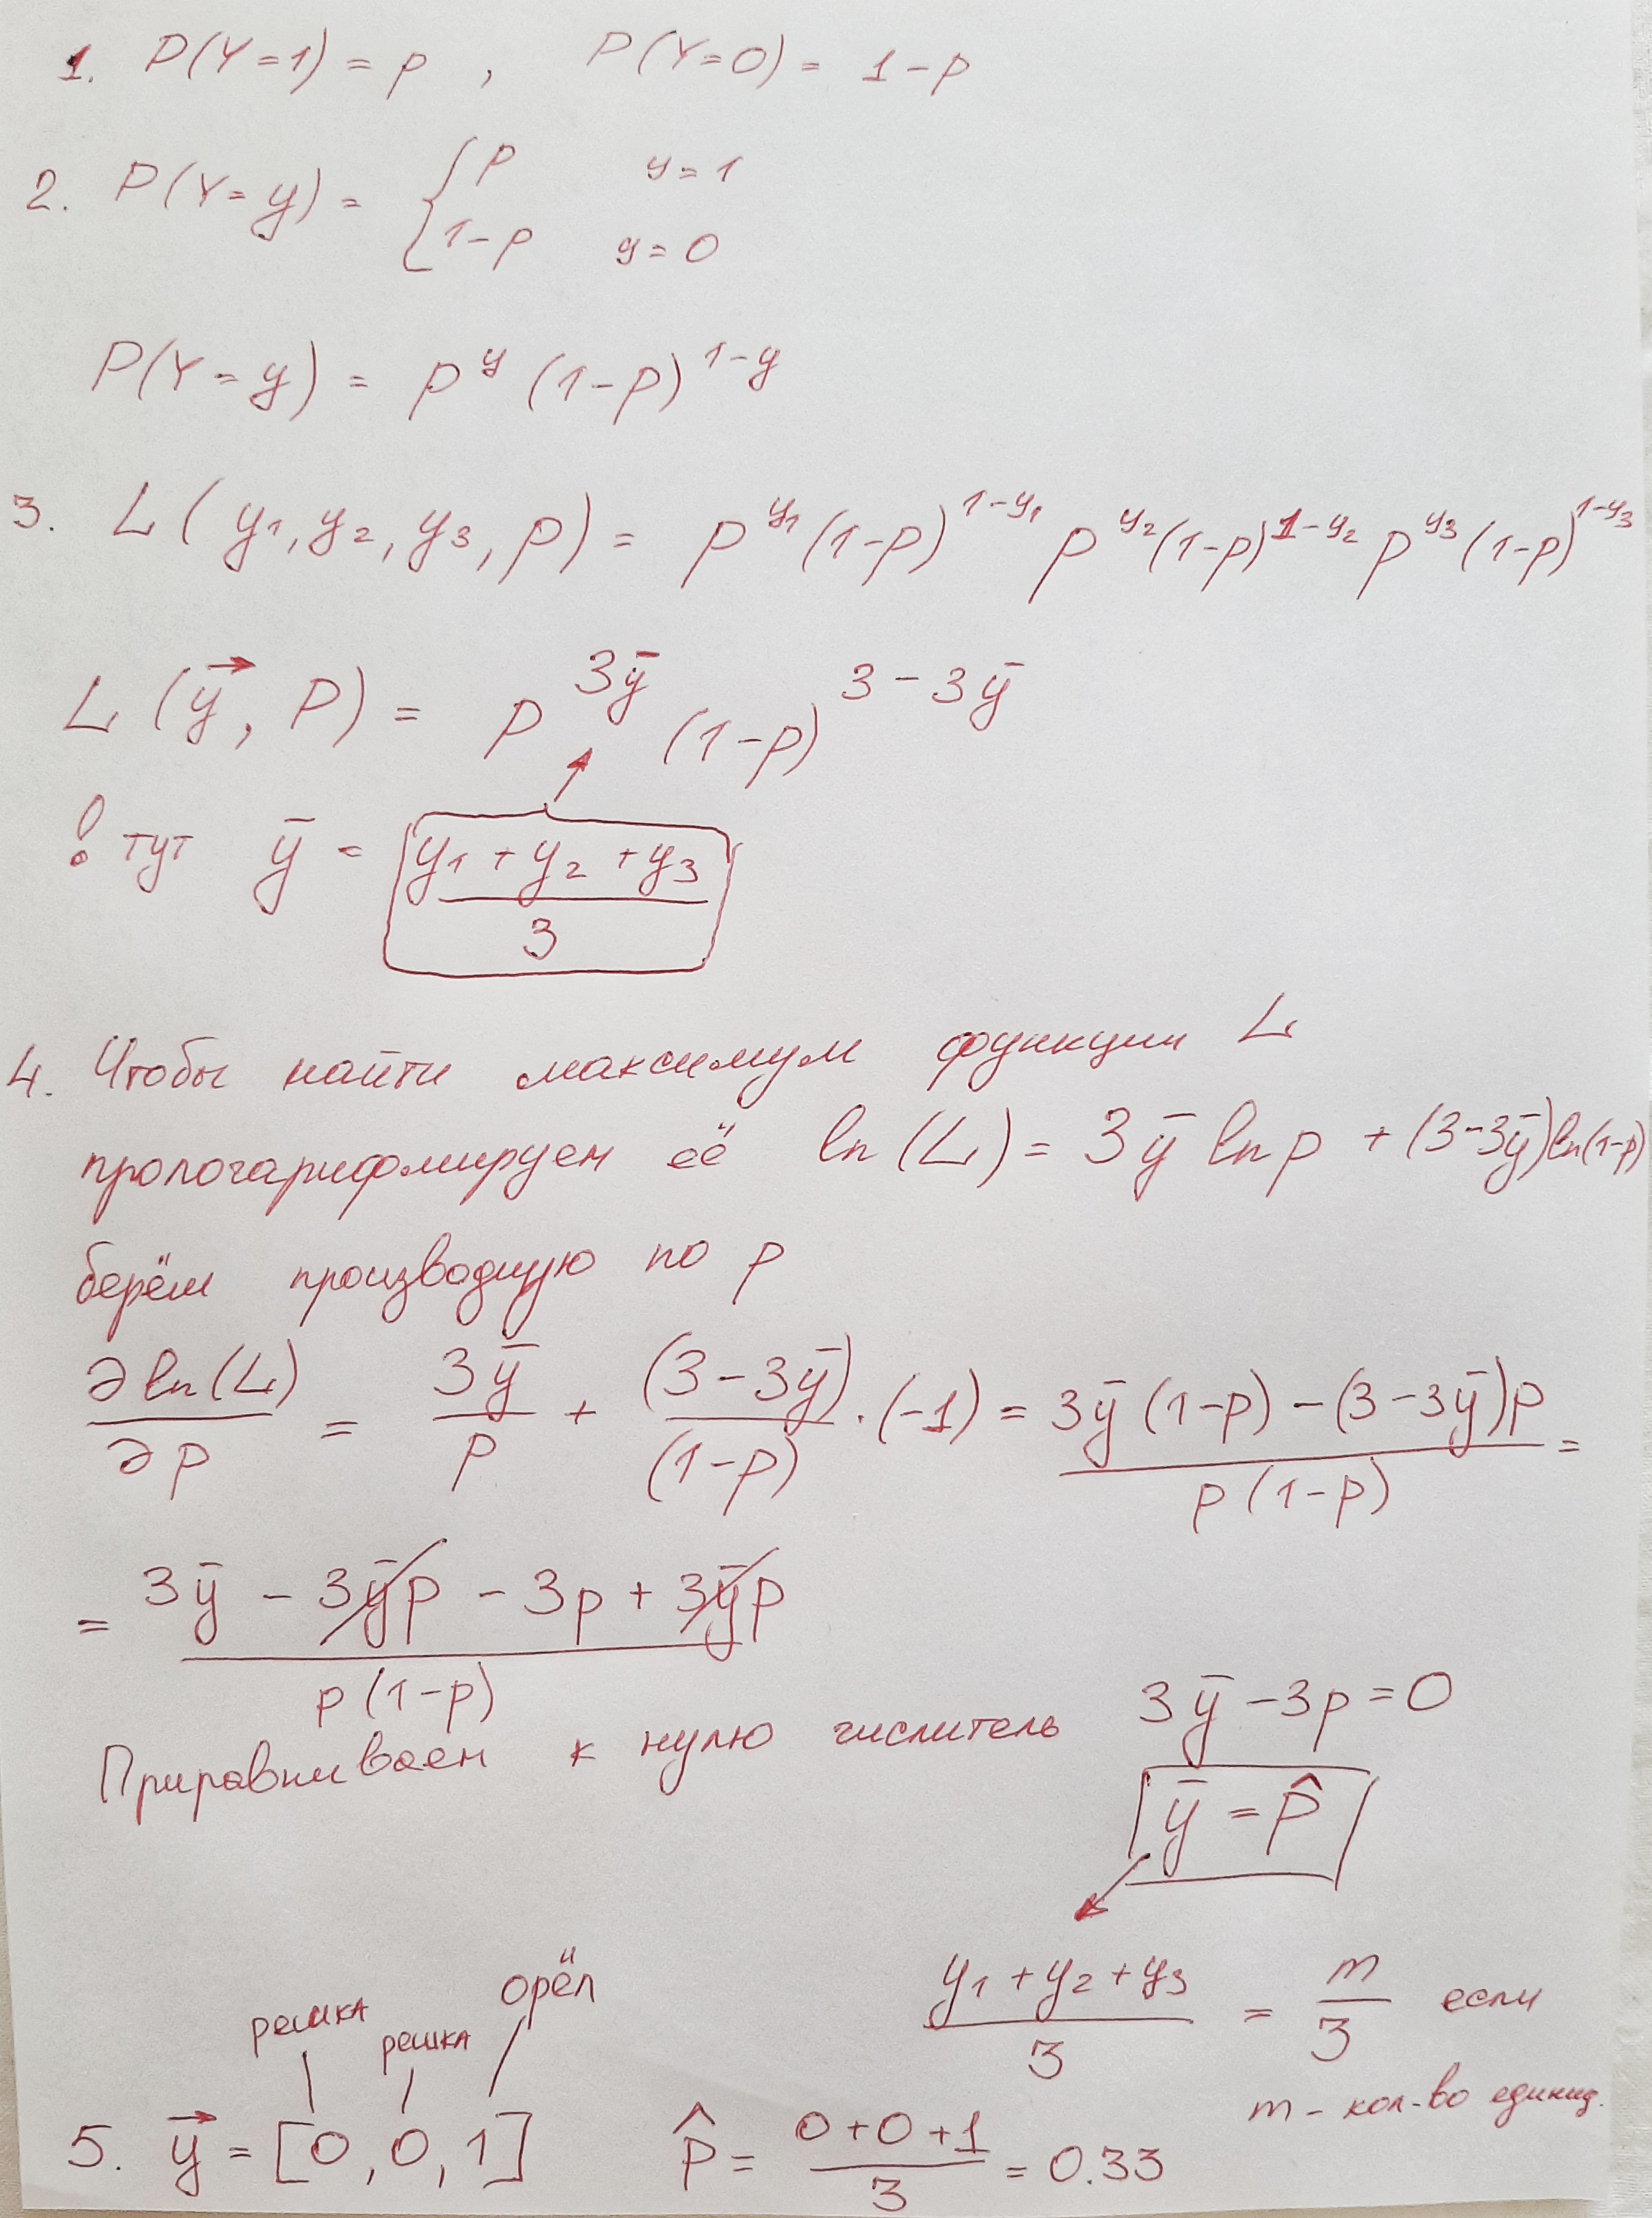 1. P(Y=1) = p , P(Y=0) = 1-p
2. P(Y=y) = { p y=1
1-p y=0
P(Y=y) = p^y (1-p)^{1-y}
3. L(y₁, y₂, y₃, p) = p^{y₁}(1-p)^{1-y₁} p^{y₂}(1-p)^{1-y₂} p^{y₃}(1-p)^{1-y₃}
L(y⃗, P) = p^{3ȳ} (1-p)^{3-3ȳ}
! тут ȳ = (y₁+y₂+y₃)/3
4. Чтобы найти максимум функции L
прологарифмируем её ln(L) = 3ȳ ln p + (3-3ȳ)ln(1-p)
берём производную по p
∂ln(L)/∂p = 3ȳ/p + (3-3ȳ)/(1-p) · (-1) = (3ȳ(1-p) - (3-3ȳ)p)/(p(1-p)) =
= (3ȳ - 3ȳp - 3p + 3ȳp)/(p(1-p))
Приравниваем к нулю числитель 3ȳ - 3p = 0
ȳ = p̂
(y₁+y₂+y₃)/3 = m/3 если
m - кол-во единиц.
решка решка орёл
5. y⃗ = [0, 0, 1] p̂ = (0+0+1)/3 = 0.33